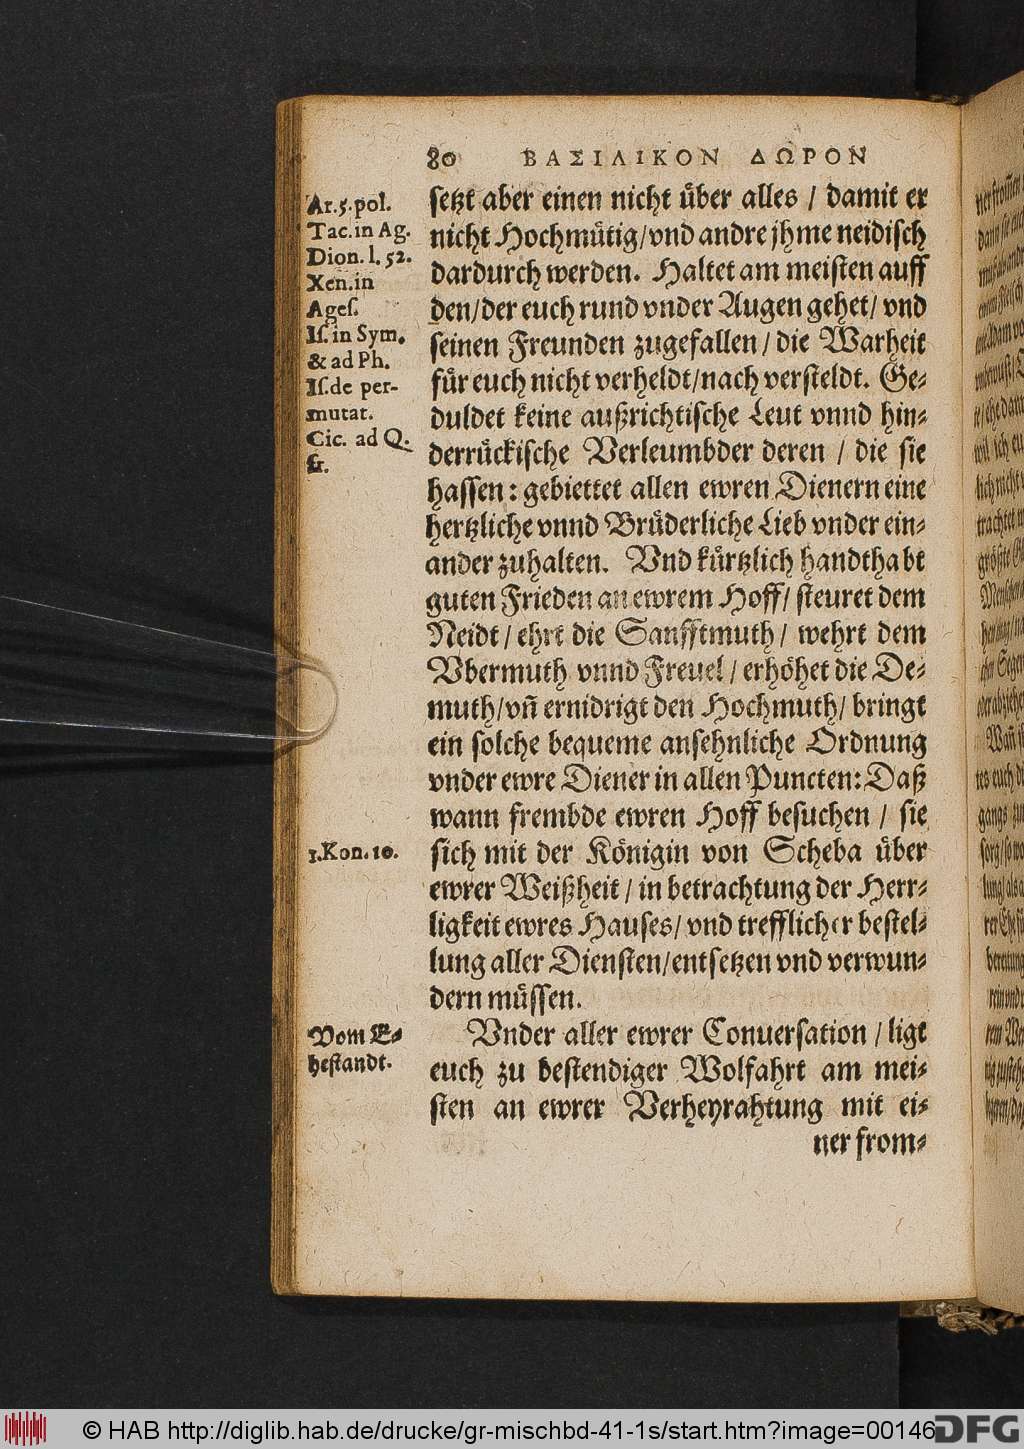 80 ΒΑΣΙΛΙΚΟΝ ΔΩΡΟΝ
setzt aber einen nicht über alles / damit er
nicht Hochmütig/vnd andre jhme neidisch
dardurch werden. Haltet am meisten auff
den/der euch rund vnder Augen gehet/ vnd
seinen Freunden zugefallen / die Warheit
für euch nicht verheldt/nach versteldt. Ge-
duldet keine außrichtische Leut vnnd hin-
derrückische Verleumbder deren / die sie
hassen: gebiettet allen ewren Dienern eine
hertzliche vnnd Brüderliche Lieb vnder ein-
ander zuhalten. Vnd kürtzlich handthabt
guten Frieden an ewrem Hoff/ steuret dem
Neidt / ehrt die Sanfftmuth / wehrt dem
Vbermuth vnnd Freuel / erhöhet die De-
muth/vñ ernidrigt den Hochmuth/ bringt
ein solche bequeme ansehnliche Ordnung
vnder ewre Diener in allen Puncten: Daß
wann frembde ewren Hoff besuchen / sie
sich mit der Königin von Scheba über
ewrer Weißheit / in betrachtung der Herr-
ligkeit ewres Hauses/ vnd trefflicher bestel-
lung aller Diensten/entsetzen vnd verwun-
dern müssen.
Vnder aller ewrer Conuersation / ligt
euch zu bestendiger Wolfahrt am mei-
sten an ewrer Verheyrahtung mit ei-
ner from-
Ar.5.pol.
Tac.in Ag.
Dion. l. 52.
Xen.in
Ages.
Is. in Sym.
& ad Ph.
Is.de per-
mutat.
Cic. ad Q.
fr.
1.Kon. 10.
Vom E-
hestandt.
© HAB http://diglib.hab.de/drucke/gr-mischbd-41-1s/start.htm?image=00146
DFG